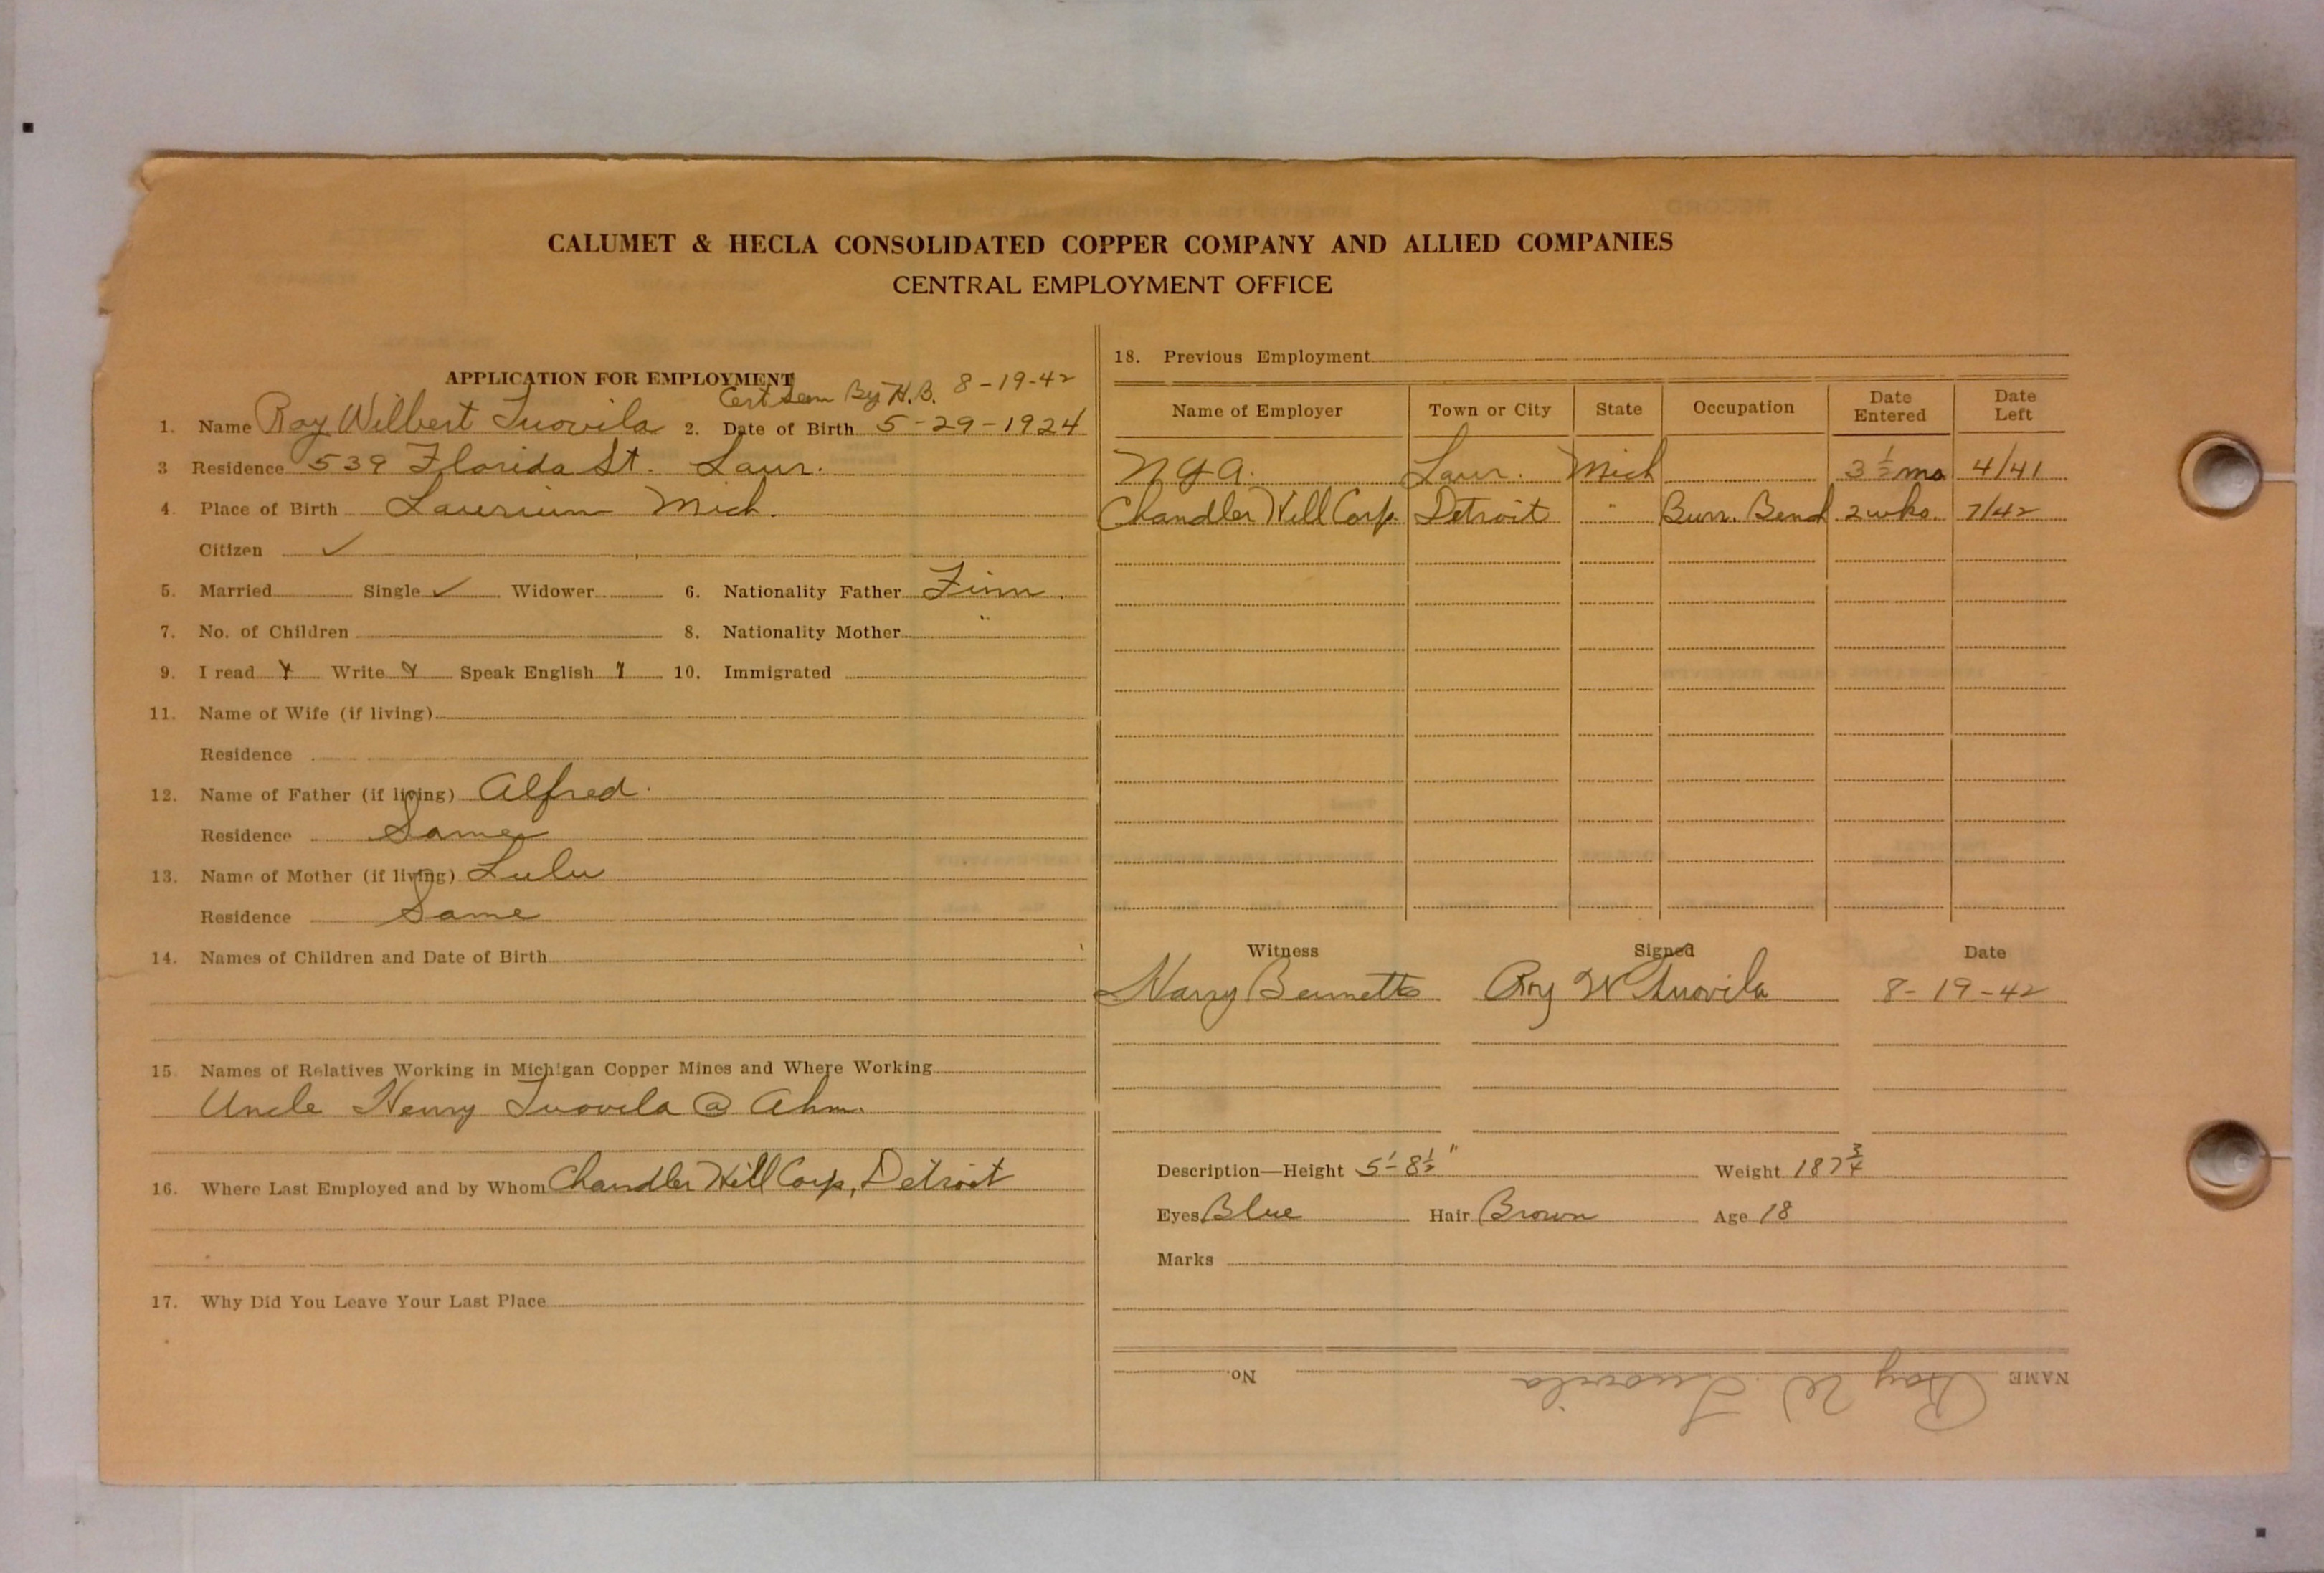 CALUMET & HECLA CONSOLIDATED COPPER COMPANY AND ALLIED COMPANIES
CENTRAL EMPLOYMENT OFFICE
APPLICATION FOR EMPLOYMENT
Cert. Seen By H.B. 8-19-42
1. Name Roy Wilbert Tuovila 2. Date of Birth 5-29-1924
3 Residence 539 Florida St. Laur.
4. Place of Birth Laurium Mich.
Citizen ✓
5. Married Single ✓ Widower 6. Nationality Father Finn.
7. No. of Children 8. Nationality Mother "
9. I read Y Write Y Speak English Y 10. Immigrated
11. Name of Wife (if living)
Residence
12. Name of Father (if living) Alfred.
Residence Same
13. Name of Mother (if living) Lulu
Residence Same
14. Names of Children and Date of Birth
15 Names of Relatives Working in Michigan Copper Mines and Where Working
Uncle Henry Tuovila @ Ahm.
16. Where Last Employed and by Whom Chandler Hill Corp, Detroit
17. Why Did You Leave Your Last Place
18. Previous Employment
Name of Employer Town or City State Occupation Date Entered Date Left
N Y A. Laur. Mich 3 1/2 mo 4/41
Chandler Hill Corp. Detroit " Burr. Bend 2 wks. 7/42
Witness Signed Date
Harry Bennetts Roy W Tuovila 8-19-42
Description—Height 5'-8 1/2" Weight 187 3/4
Eyes Blue Hair Brown Age 18
Marks
NAME Roy W. Tuovila No.